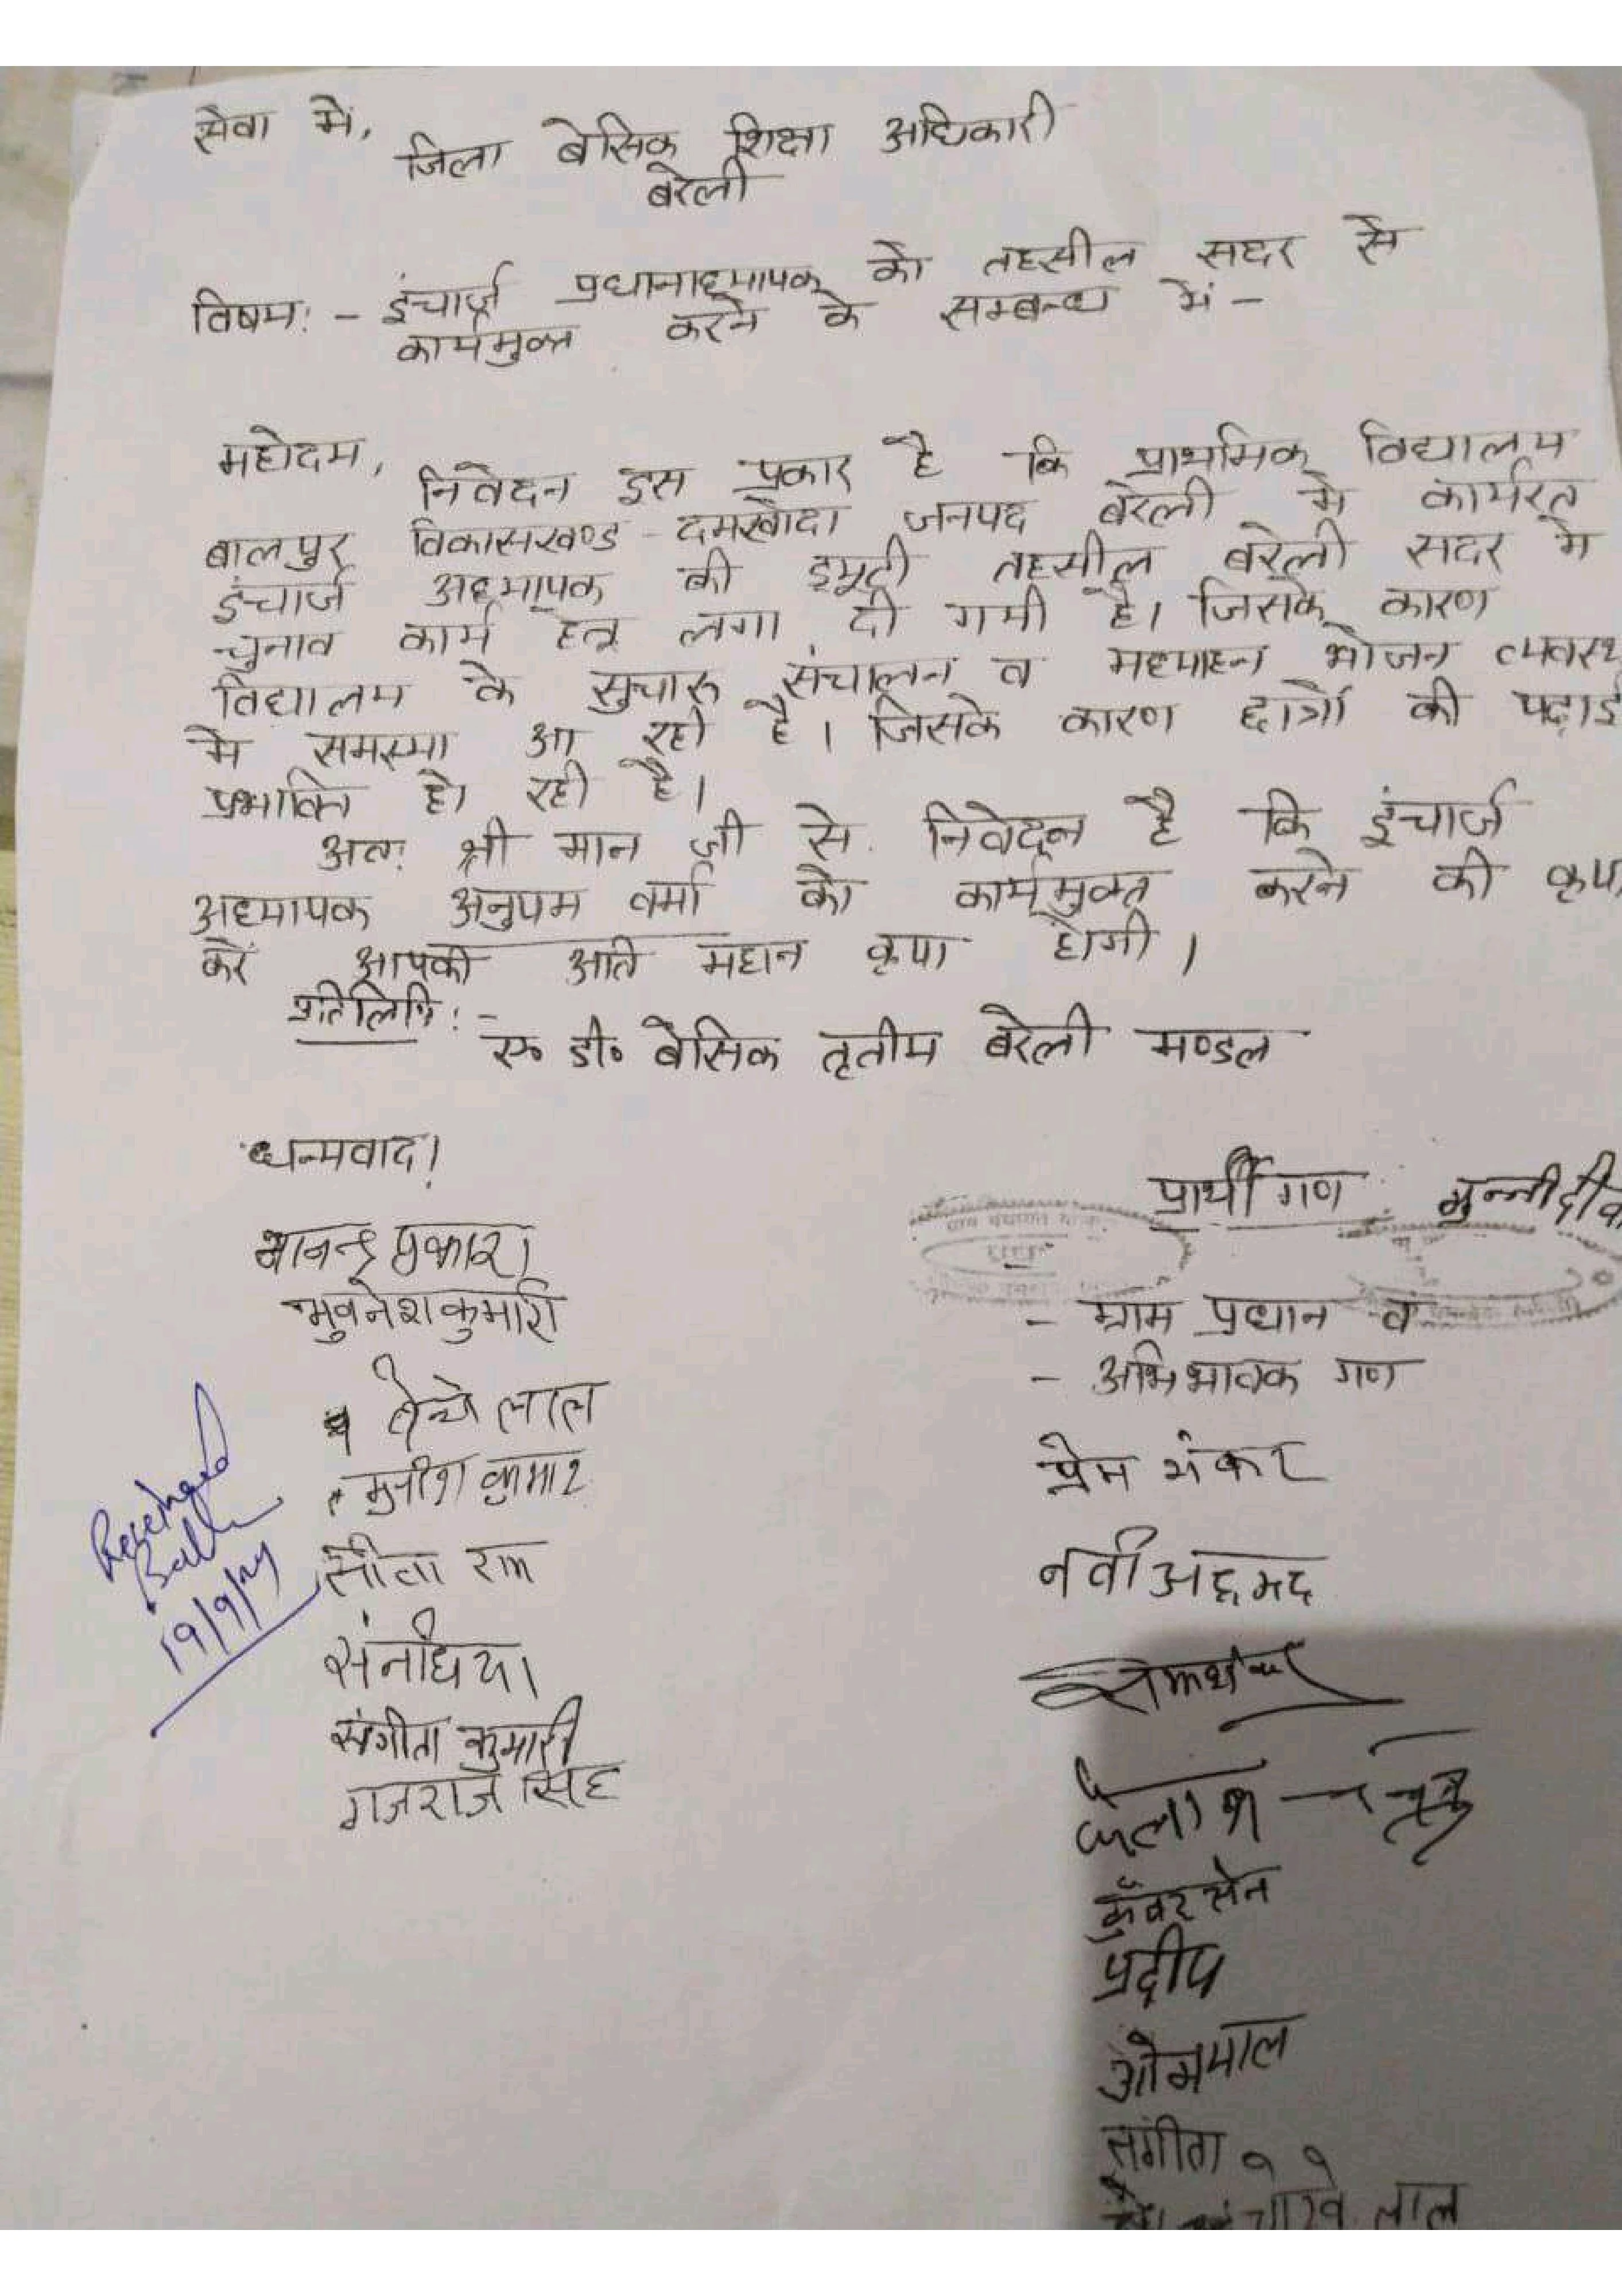 सेवा में,
जिला बेसिक शिक्षा अधिकारी
बरेली
विषय: - इंचार्ज प्रधानाध्यापक को तहसील सदर से
कार्यमुक्त करने के सम्बन्ध में -
महोदय,
निवेदन इस प्रकार है कि प्राथमिक विद्यालय
बालपुर विकासखण्ड - दमखोदा जनपद बरेली मे कार्यरत
इंचार्ज अध्यापक की ड्यूटी तहसील बरेली सदर मे
चुनाव कार्य हेतु लगा दी गयी है। जिसके कारण
विद्यालय के सुचारू संचालन व मध्याहन भोजन व्यवस्थ
मे समस्या आ रही है। जिसके कारण छात्रों की पढ़ाई
प्रभावित हो रही है।
अतः श्री मान जी से निवेदन है कि इंचार्ज
अध्यापक अनुपम वर्मा को कार्यमुक्त करने की कृपा
करें आपकी अति महान कृपा होगी।
प्रतिलिपि: -
ए० डी० बेसिक तृतीय बरेली मण्डल
धन्यवाद!
प्रार्थी गण मुन्नी देवी
प्रकाश
भुवनेश कुमारी
- ग्राम प्रधान व
- अभिभावक गण
लाल
प्रेम शंकर
मुनीश कुमार
सीता राम
नवी अहमद
19/9/24
संगीता कुमारी
गजराज सिंह
कैलाश
कुँवर सेन
प्रदीप
ओमपाल
संगीता
लाल